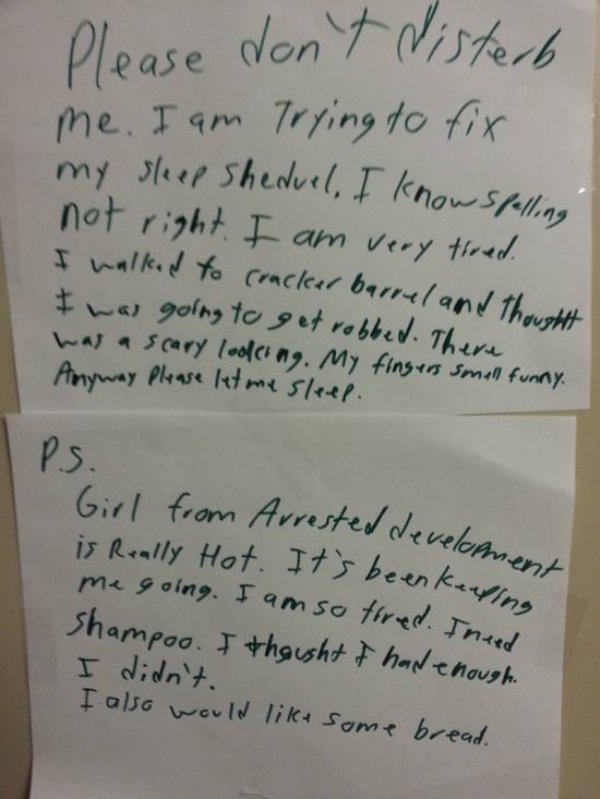 Please don't disterb
me. I am Trying to fix
my sleep sheduel, I know spelling
not right. I am very tired.
I walked to cracker barrel and thought
I was going to get robbed. There
was a scary looking. My fingers smell funny.
Anyway Please let me sleep.
P.S.
Girl from Arrested development
is Really Hot. It's been keeping
me going. I am so tired. I need
shampoo. I thought I had enough.
I didn't.
I also would like some bread.